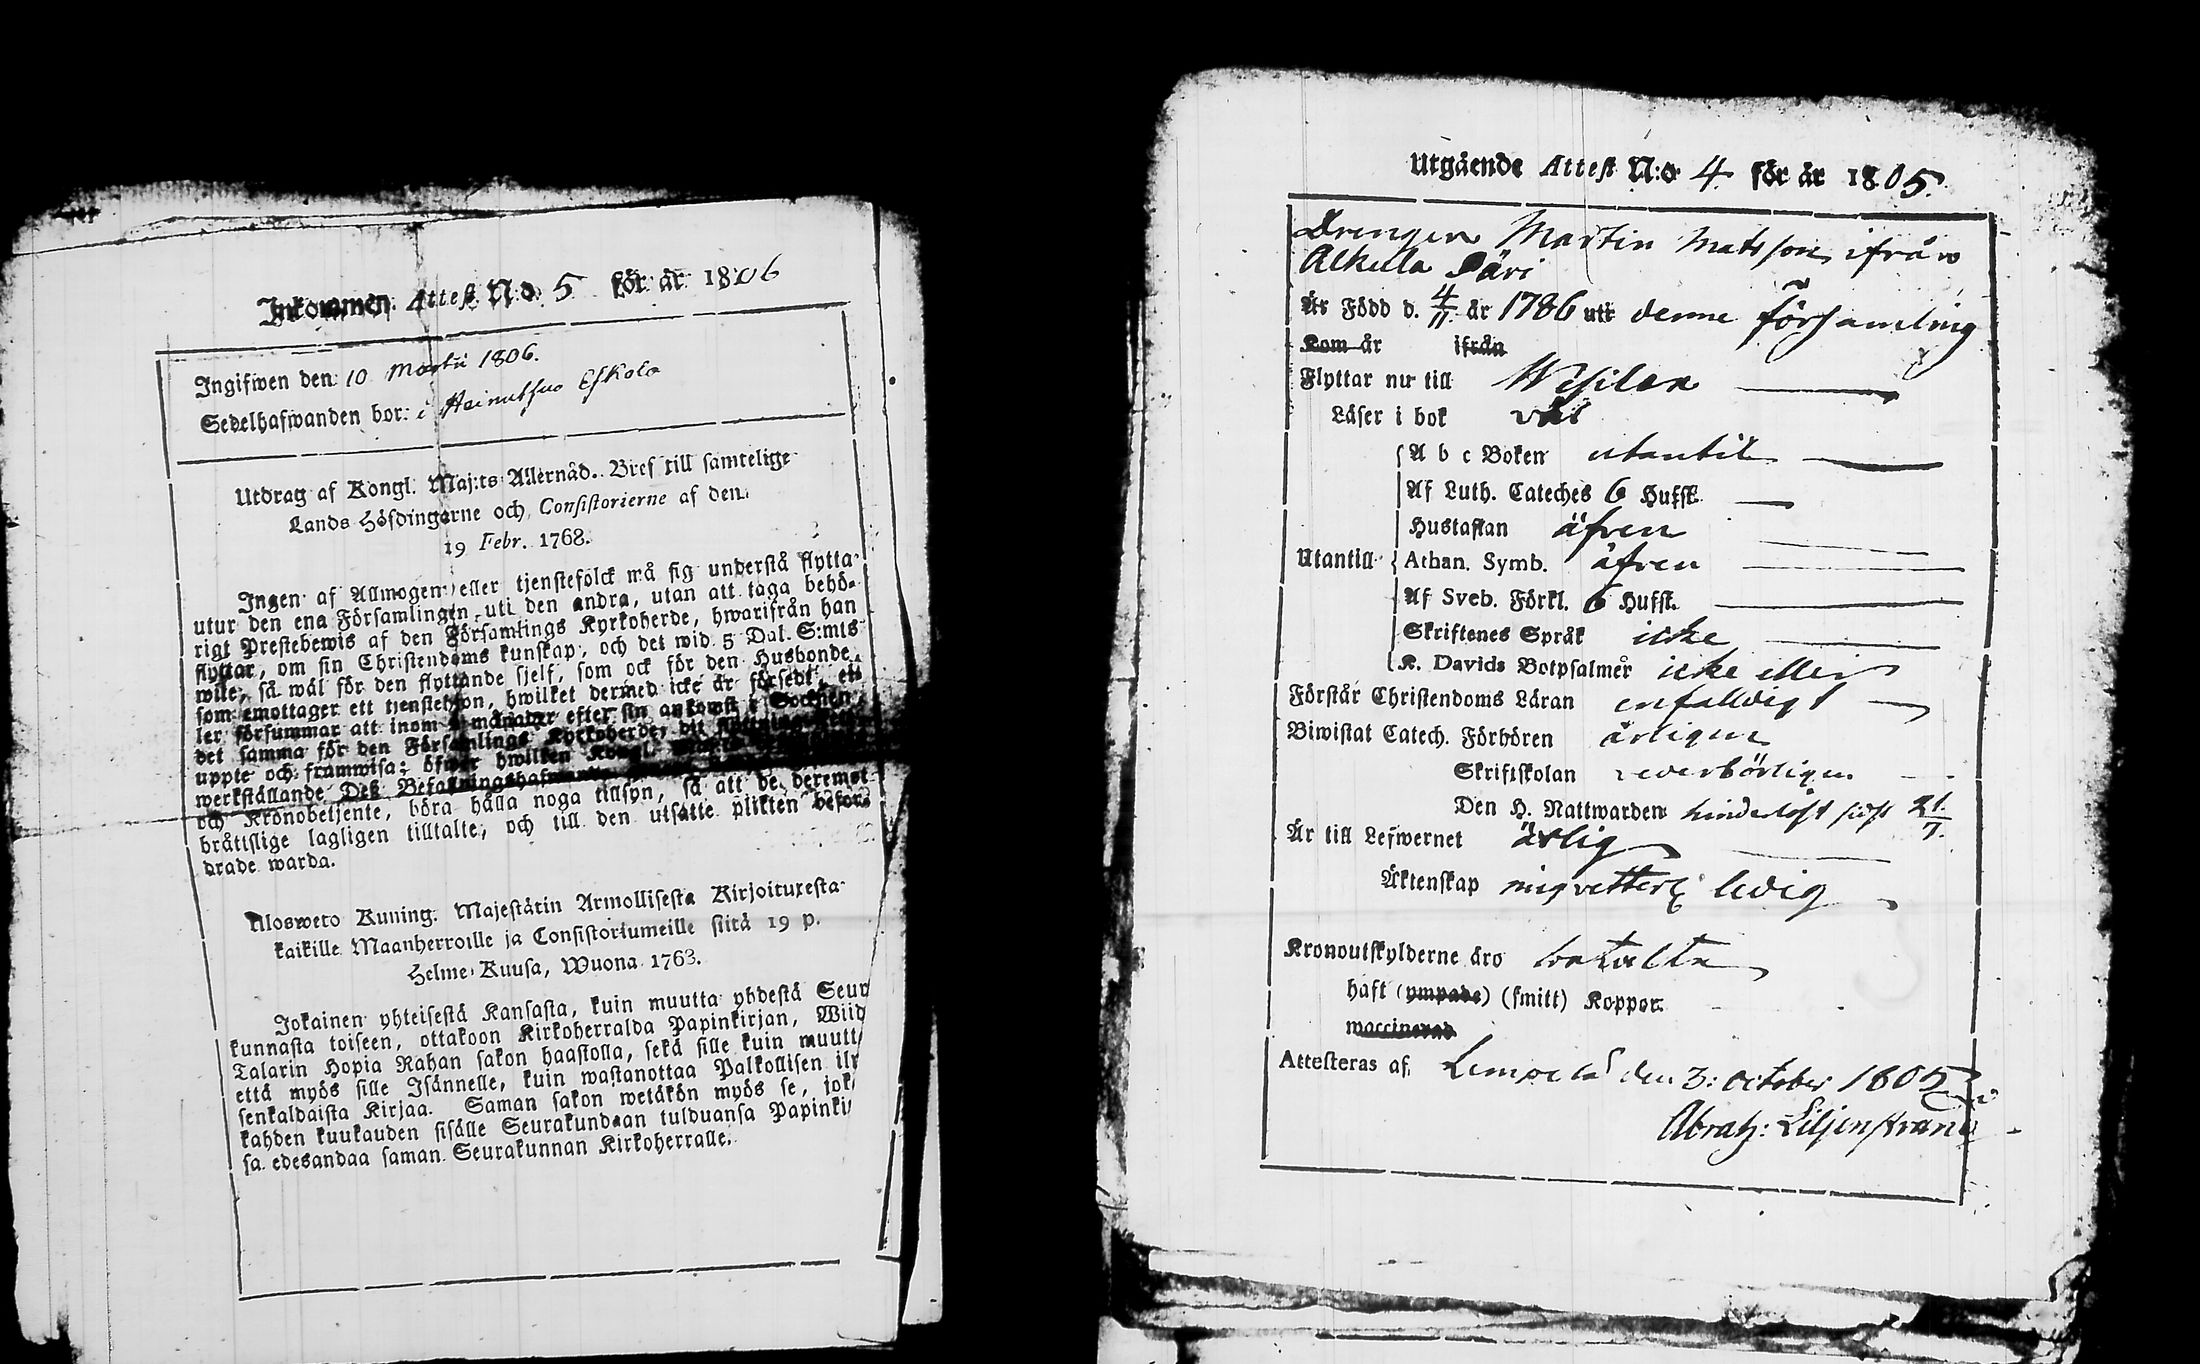 Inkommen Attest N:o 5 för år 1806
Ingifwen den 10 Martii 1806.
Sedelhafwanden bor: i Heinutsuo Eskola
Utdrag af Kongl. Maj:ts Allernåd. Bref till samtelige
Lands Höfdingarne och Consistorierne af den
19 Febr. 1768.
Ingen af Allmogen eller tjenstefolck må sig understå flytta
utur den ena Församlingen uti den andra, utan att taga behö-
rigt Prestebewis af den Församlings Kyrkoherde, hwarifrån han
flyttar, om sin Christendoms kunskap, och det wid 5 Dal. S:mts
wite, så wäl för den flyttande sjelf, som ock för den Husbonde
som emottager ett tjenstehjon, hwilket dermed icke är försedt, el-
ler försummar att inom månader efter sin ankomst i Socknen
det samma för den Församlings Kyrkoherde, dit
uppte och framwisa; öfwer hwilken Kongl.
werkställande Deß Befallningshafwande
och Kronobetjente, böra hålla noga tillsyn, så att de deremot
bråttslige lagligen tilltalte, och till den utsatte plikten befor-
drade warda.
Ulosweto Kuning. Majestätin Armollisesta Kirjoituxesta
kaikille Maanherroille ja Consistoriumeille siitä 19 p.
Helme-Kuusa, Wuona 1763.
Jokainen yhteisestä Kansasta, kuin muutta yhdestä Seur
kunnasta toiseen, ottakoon Kirkoherralda Papinkirjan, Wiid
Talarin Hopia Rahan sakon haastolla, sekä sille kuin muutt
että myös sille Isännelle, kuin wastanottaa Palkollisen ilm
senkaldaista Kirjaa. Saman sakon wetäkön myös se, jok
kahden kuukauden sisälle Seurakundaan tulduansa Papinki
sa edesandaa saman Seurakunnan Kirkoherralle.
Utgående Attest N:o 4 för år 1805.
Drengen Martin Matsson ifrån
Alkula Säri
Är Född d. 4/11 år 1786 uti denne församling
Kom år ifrån
Flyttar nu till Wesilax
Läser i bok väl
A b c Boken utantil
Af Luth. Cateches 6 Hufst.
Hustaflan äfven
Utantill Athan. Symb. äfven
Af Sveb. Förkl. 6 Hufst.
Skriftenes Språk icke
K. Davids Botpsalmer icke eller
Förstår Christendoms Läran enfalldigt
Biwistat Catech. Förhören årligen
Skriftskolan vederbörligen
Den H. Nattwarden hinderlöst sidst 21/7.
Är till Lefwernet ärlig
Äktenskap mig vetterl. ledig
Kronoutskylderne äro betalta
haft (ympade) (smitt) Koppor
waccinerad
Attesteras af Lempälä den 3: October 1805
Abrah: Liljenstrand